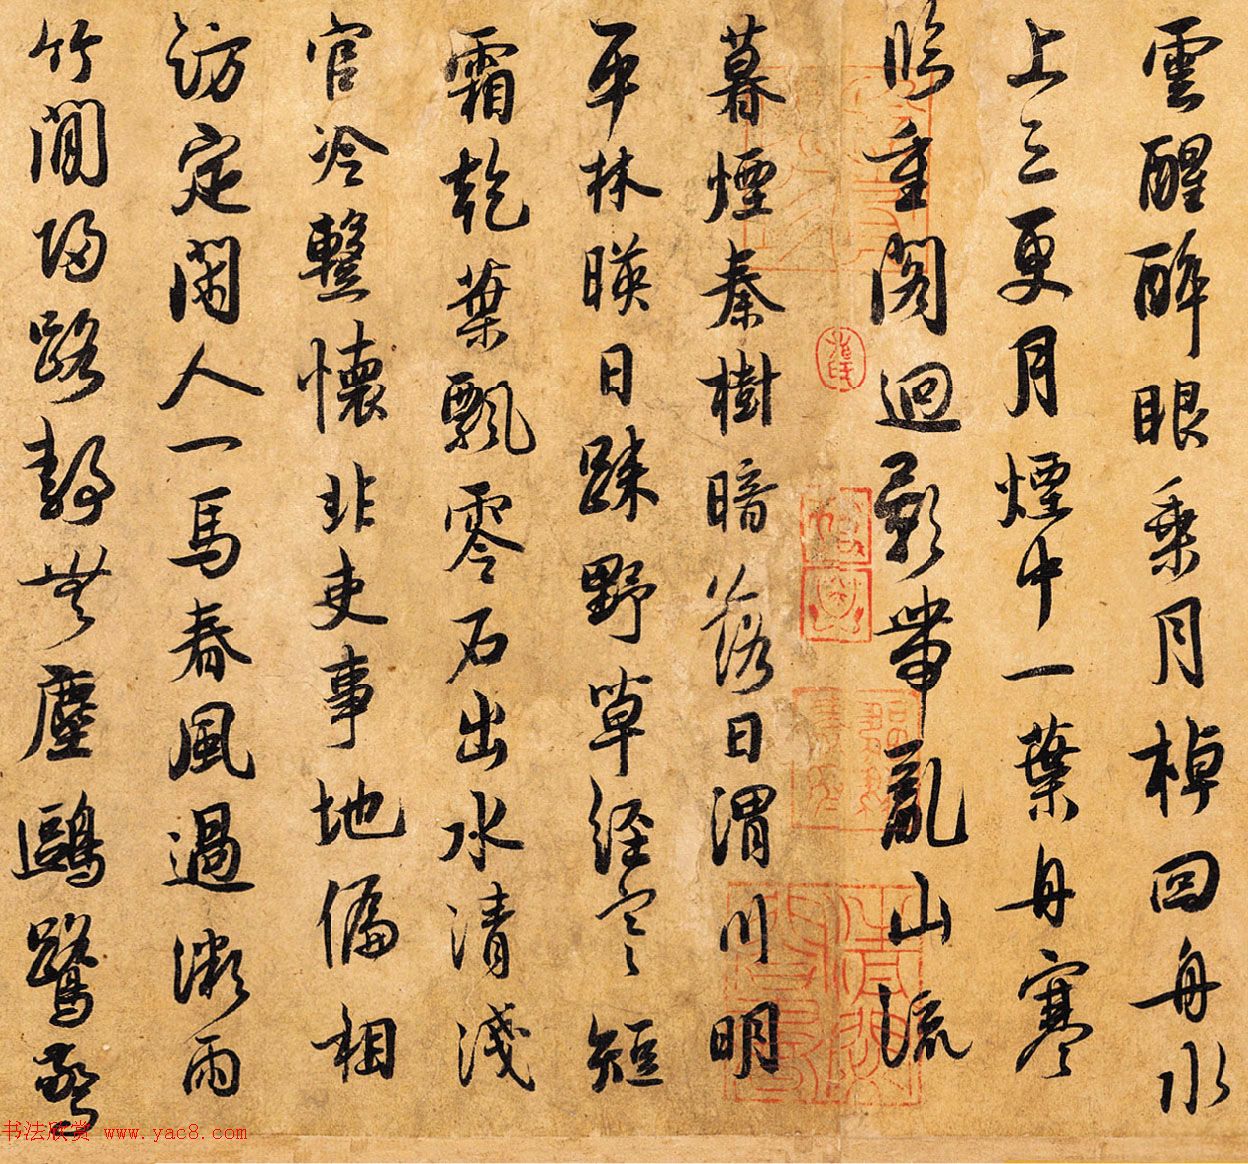 雲醒醉眼乘月棹回舟水
上三更月煙中一葉舟寒
臨重閣迥影帶亂山流
暮煙秦樹暗落日渭川明
平林暎日疎野草經寒短
霜乾葉飄零石出水清淺
官冷整懷非吏事地偏相
訪定閑人一馬春風過微雨
竹間歸路靜無塵鷗鷺驚
书法欣赏 www.yac8.com